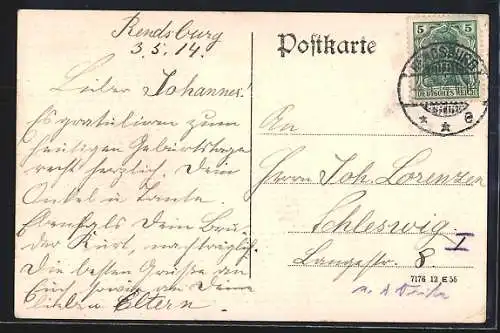 Rendsburg
3.5.14.
Lieber Johannes!
Es gratulieren zum
heutigen Geburtstage
recht herzlich. Dein
Onkel u Tante.
Ebenfals Dein Bru-
der Kurt, nachträglich.
Die besten Grüße an
Euch, sowie an Deine
lieben Eltern.
Postkarte
5 5
DEUTSCHES REICH
* * e
An
Herrn Joh. Lorenzen
Schleswig.
I
Langestr. 8.
7176 12 E 56